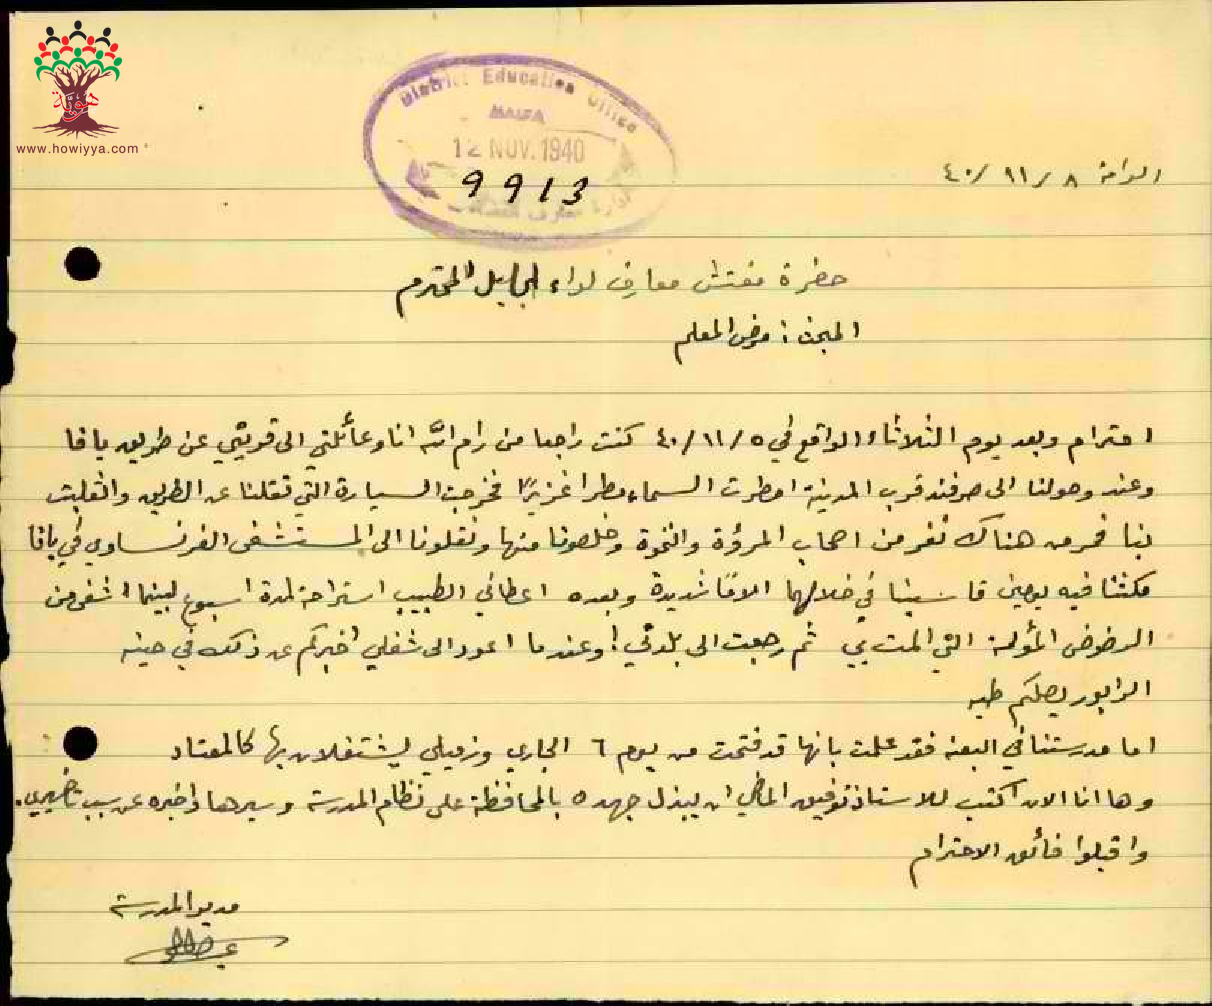 هوية
www.howiyya.com
District Education Office
HAIFA
12 NOV. 1940
9913
الرامة ٨/١١/٤٠
حضرة مفتش معارف لواء الجليل المحترم
المبحث: مرض المعلم
احترام وبعد يوم الثلاثاء الواقع في ٥/١١/٤٠ كنت راجعا من رام الله انا وعائلتي الى قريتي عن طريق يافا
وعند وصولنا الى صرفند قرب المدينة امطرت السماء مطرا غزيرًا فخرجت السيارة التي تقلنا عن الطريق وانقلبت
بنا فخرج هناك نفر من اصحاب المروءة والنخوة وخلصونا منها ونقلونا الى المستشفى الفرنساوي في يافا
مكثنا فيه يومين قاسينا في خلالهما الامًا شديدة وبعده اعطاني الطبيب استراحة لمدة اسبوع لبينما اشفى من
الرضوض المؤلمة التي المت بي ثم رجعت الى بلدتي وعندما اعود الى شغلي أخبركم عن ذلك في حينه
الرابور يصلكم طيه
اما مدرستنا في البعنه فقد علمت بانها قد فتحت من يوم ٦ الجاري وزميلي يشتغلان بها كالمعتاد
وها انا الان أكتب للاستاذ توفيق ان يبذل جهده بالمحافظة على نظام المدرسة وسيرها واخبره عن سبب تأخيري.
واقبلوا فائق الاحترام
مدير المدرسة